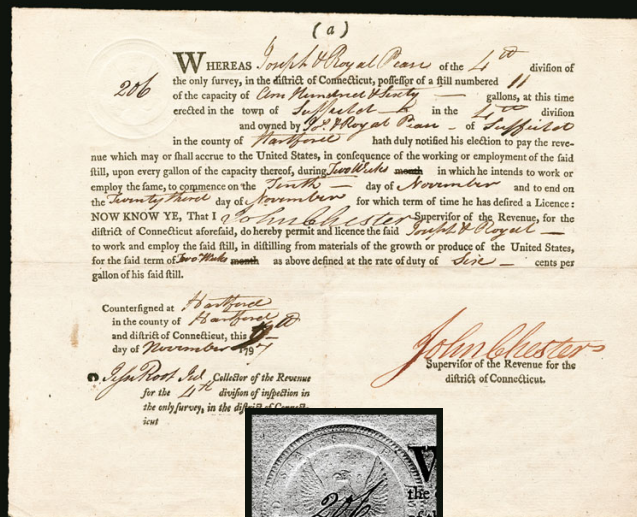 (a)
206
WHEREAS Joseph & Royal Pean of the 4th division of
the only survey, in the district of Connecticut, possessor of a still numbered 11
of the capacity of One Hundred & Sixty — gallons, at this time
erected in the town of Suffield in the 4th division
and owned by Jos. & Royal Pean - of Suffield
in the county of Hartford hath duly notified his election to pay the reve-
nue which may or shall accrue to the United States, in consequence of the working or employment of the said
still, upon every gallon of the capacity thereof, during Two Weeks month in which he intends to work or
employ the same, to commence on the Tenth — day of November and to end on
the Twenty third day of November for which term of time he has desired a Licence:
NOW KNOW YE, That I John Chester Supervisor of the Revenue, for the
district of Connecticut aforesaid, do hereby permit and licence the said Joseph & Royal —
to work and employ the said still, in distilling from materials of the growth or produce of the United States,
for the said term of Two Weeks month as above defined at the rate of duty of Six — cents per
gallon of his said still.
Countersigned at Hartford
in the county of Hartford
and district of Connecticut, this
day of November 1797
John Chester
Supervisor of the Revenue for the
district of Connecticut.
Jesse Root Jud Collector of the Revenue
for the 4th division of inspection in
the only survey, in the district of Connect-
icut
206
W
the